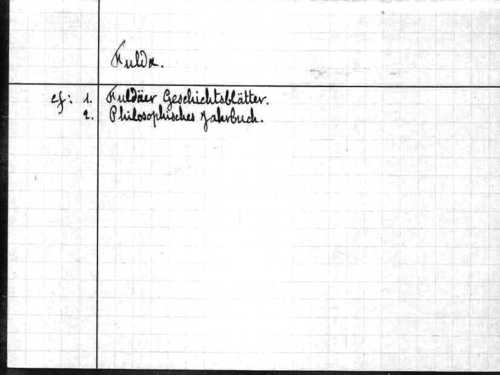 Fulda.
cf: 1. Fuldäer Geschichtsblätter.
2. Philosophisches Jahrbuch.